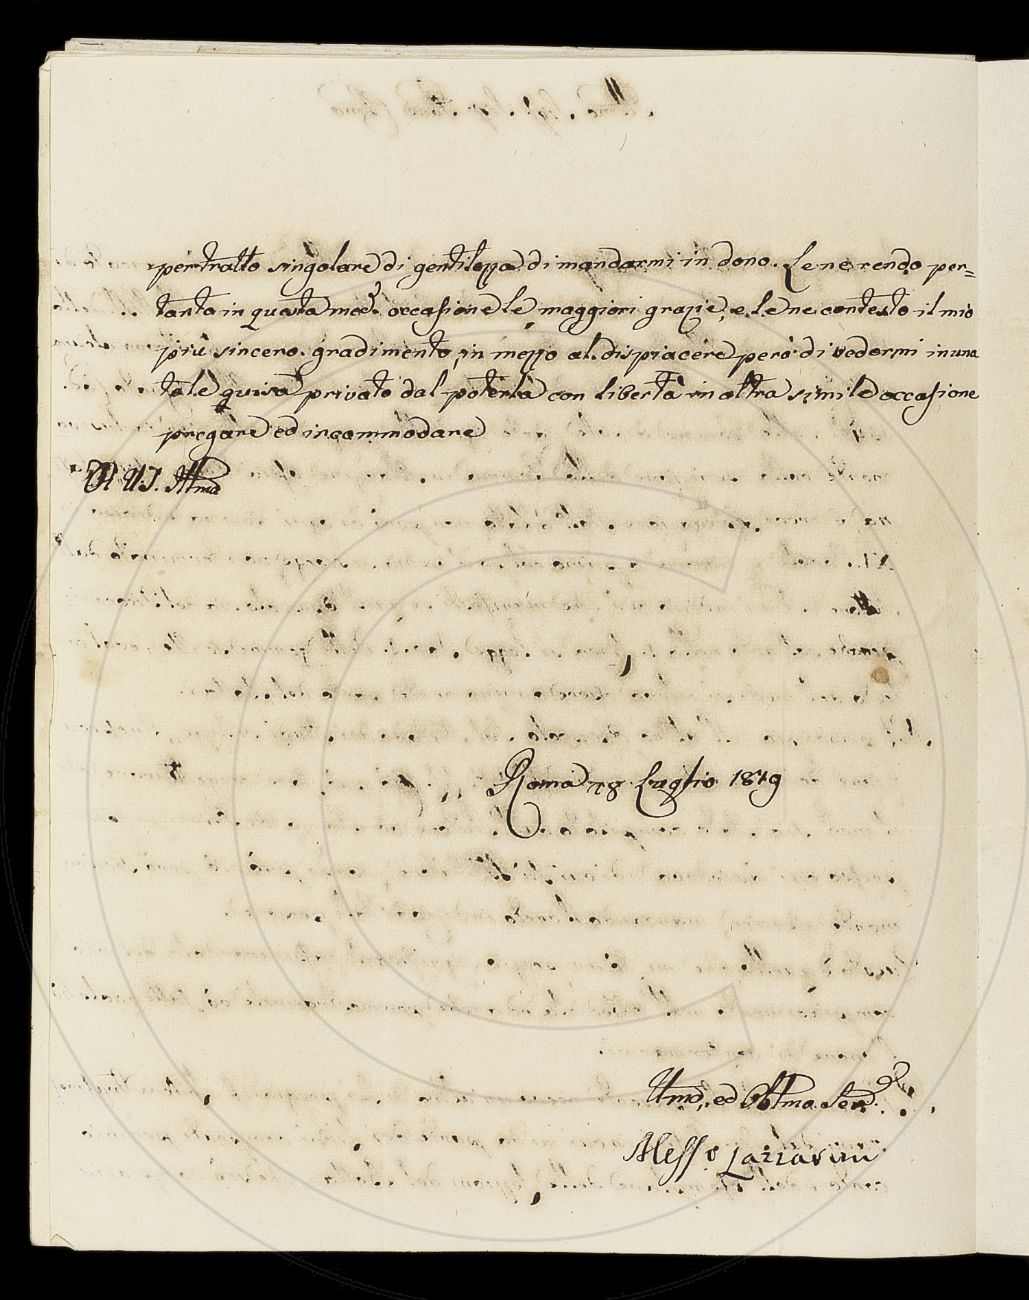 per tratto singolare di gentilezza di mandarmi in dono. Le ne rendo per=
tanto in questa med.ª occasione le maggiori grazie, e le ne contesto il mio
più sincero gradimento, in mezzo al dispiacere però di vedermi in una
tale guisa privato dal poterla con libertà in altra simile occasione
pregare ed incommodare
Di V.S. Illma
Roma 28 Luglio 1819
Umo, ed Obbmo Serv.e
Aless.o Lazzarini